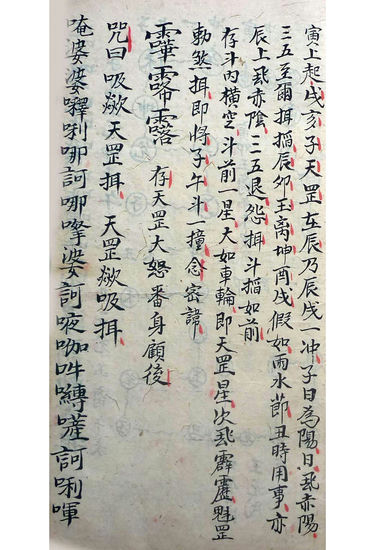 寅上起戌亥子天罡在辰乃辰戌一冲子日為陽日飛赤陽
三五至爾揖搯辰卯玉离坤酉戌假如雨水節丑時用事亦
辰上飛赤陰三五退怨揖斗搯如前
存斗内横空斗前一星大如車輪即天罡星次飛霹靂魁罡
勅煞揖即将子午斗一撞念密諱
存天罡大怒番身顧後
咒曰吸歘天罡揖天罡歘吸揖
唵婆婆囉唎哪訶哪嚤婆訶夜咖吽囀嗟訶唎㖸